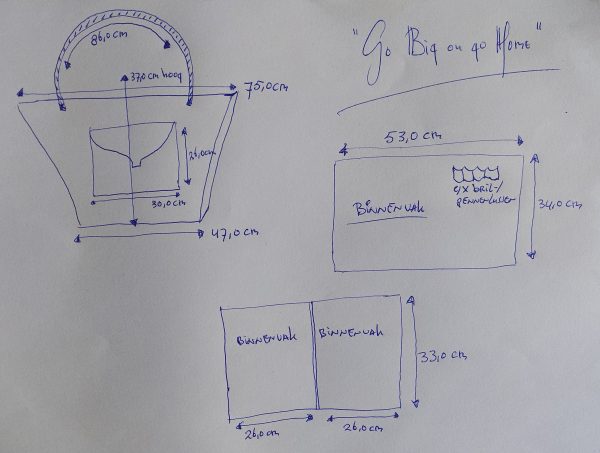 "Go Big on go Home"
86,0 cm
37,0 cm hoog
75,0 cm
26,0 cm
30,0 cm
47,0 cm
53,0 cm
4x bril-/
pennenlusen
BINNENVAK
34,0 cm
BINNENVAK
BINNENVAK
33,0 cm
26,0 cm
26,0 cm